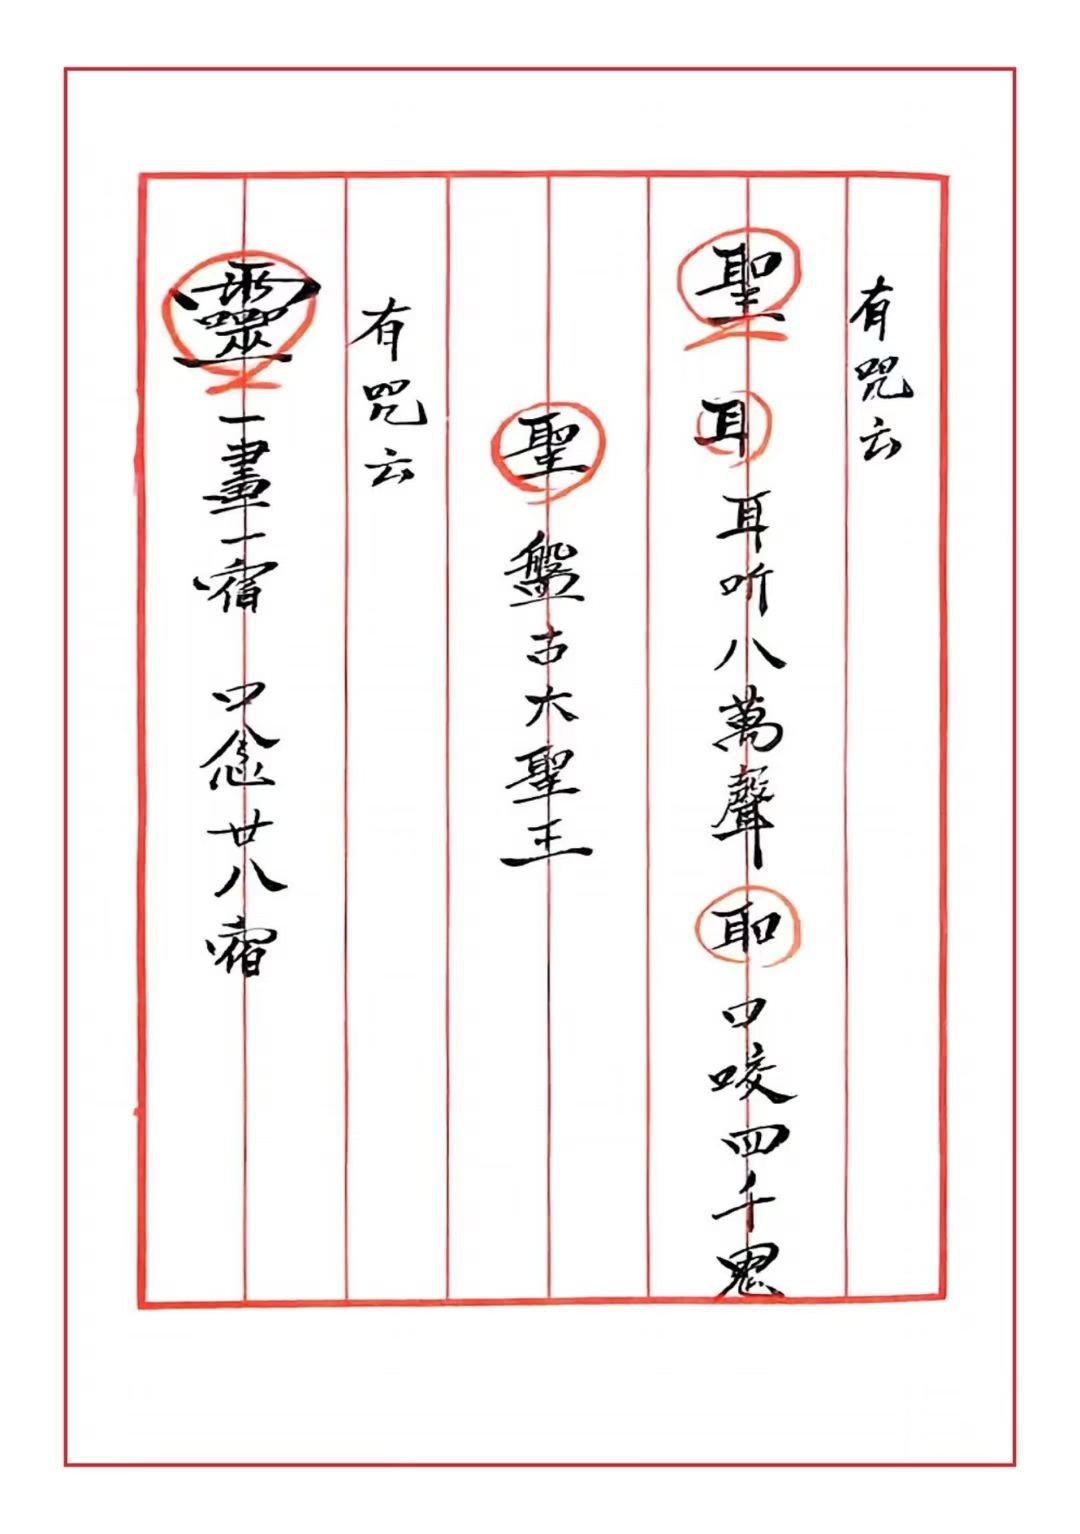 有咒云
聖 耳 耳听八萬聲 耶 口咬四千鬼
聖 盤古大聖王
有咒云
靈 一畫一宿 口念廿八宿